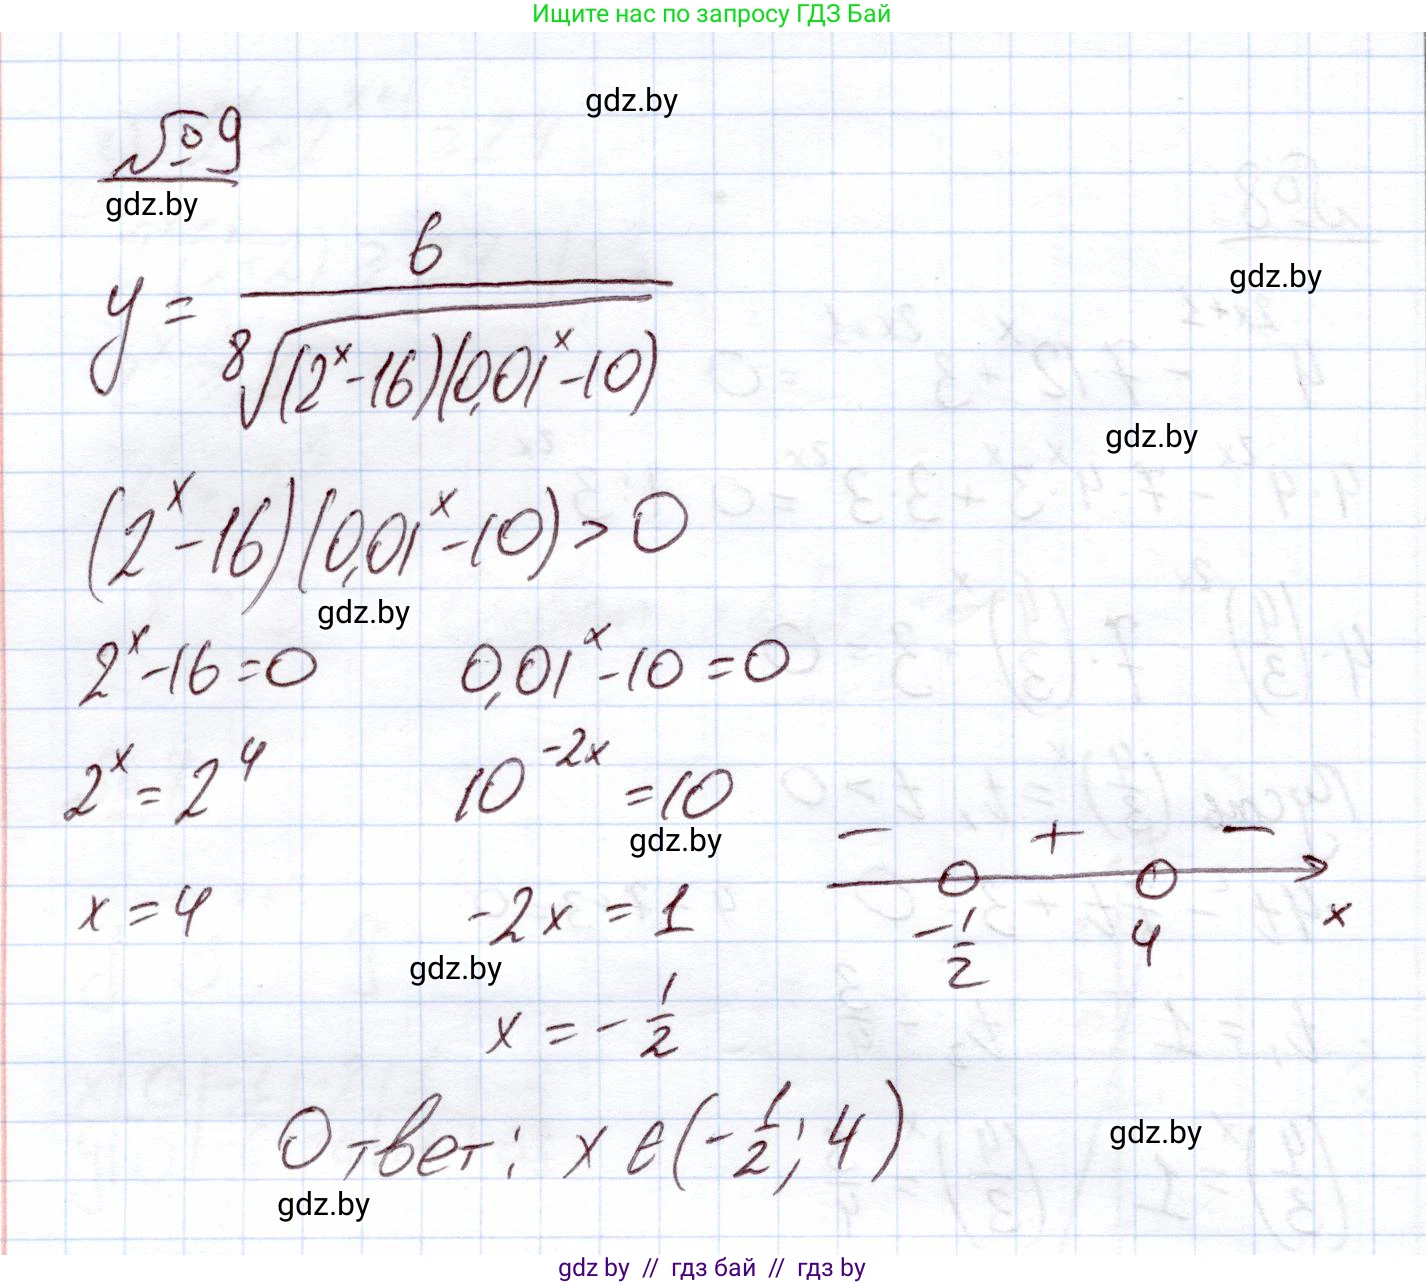 Ищите нас по запросу ГДЗ Бай
gdz.by
№ 9
gdz.by
y = 6 / ⁸√((2ˣ-16)(0,01ˣ-10))
gdz.by
gdz.by
(2ˣ-16)(0,01ˣ-10) > 0
gdz.by
2ˣ-16=0 0,01ˣ-10=0
2ˣ = 2⁴ 10⁻²ˣ = 10
gdz.by
− + −
x = 4 -2x = 1
-1/2 4 x
gdz.by
x = -1/2
Ответ: x ∈ (-1/2; 4)
gdz.by
gdz.by
gdz.by // гдз бай // гдз by